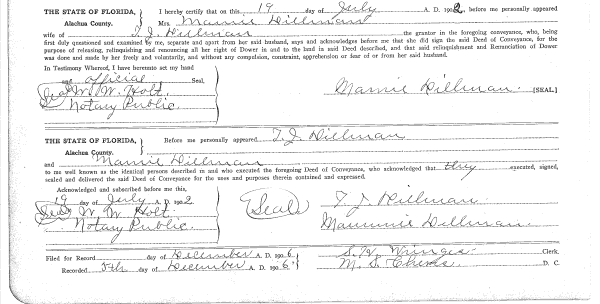 THE STATE OF FLORIDA, I hereby certify that on this 19 day of July A. D. 1902, before me personally appeared
Alachua County. Mrs. Mamie Dillman
wife of T. J. Dillman the grantor in the foregoing conveyance, who, being
first duly questioned and examined by me, separate and apart from her said husband, says and acknowledges before me that she did sign the said Deed of Conveyance, for the
purpose of releasing, relinquishing and renouncing all her right of Dower in and to the land in said Deed described, and that said relinquishment and Renunciation of Dower
was done and made by her freely and voluntarily, and without any compulsion, constraint, apprehension or fear of or from her said husband.
In Testimony Whereof, I have hereunto set my hand
and official Seal,
(Seal) W. W. Holt Mamie Dillman. [SEAL]
Notary Public.
THE STATE OF FLORIDA, Before me personally appeared T. J. Dillman
Alachua County.
and Mamie Dillman
to me well known as the identical persons described in and who executed the foregoing Deed of Conveyance, who acknowledged that they executed, signed,
sealed and delivered the said Deed of Conveyance for the uses and purposes therein contained and expressed.
Acknowledged and subscribed before me this,
19 day of July A. D. 1902
(Seal) W. W. Holt (Seal) T. J. Dillman
Notary Public. Mammie Dillman
Filed for Record day of December A. D. 1906 S. H. Wienges Clerk,
Recorded 5th day of December A. D. 1906 M. S. D. C.